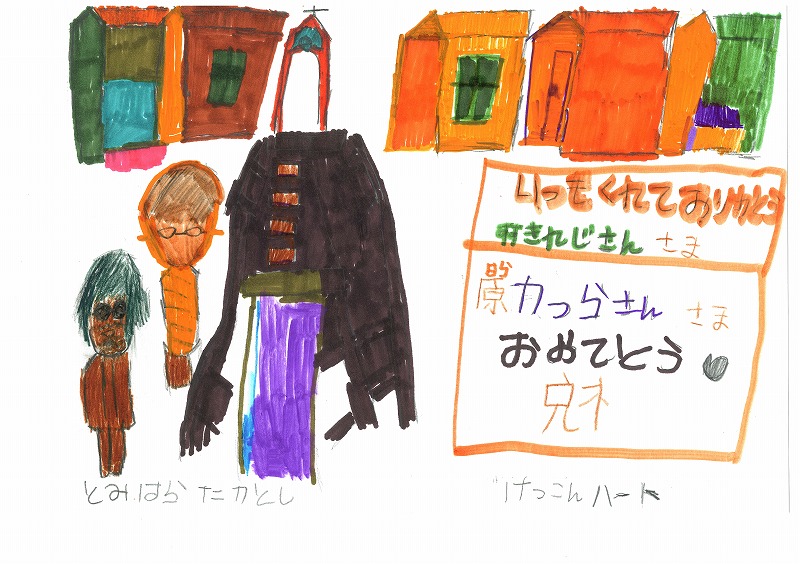 いつもくれておりがとう
かきれじさん さま
原 かつらさん さま
おめでとう
兄才
とみはら たかとし
けっこんハート